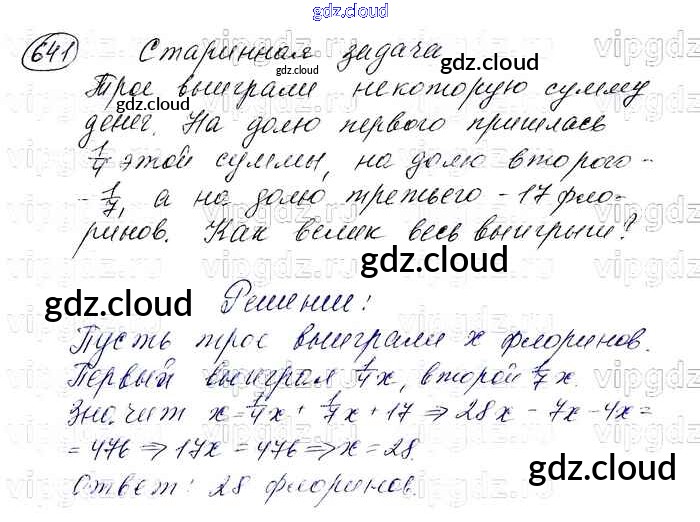 gdz.cloud
641 Старинная задача
Трое выиграли некоторую сумму
денег. На долю первого пришлась
1/4 этой суммы, на долю второго -
- 1/7, а на долю третьего - 17 фло-
ринов. Как велик весь выигрыш?
Решение:
Пусть трое выиграли x флоринов.
Первый выиграл 1/4x, второй 1/7x.
Значит x = 1/4x + 1/7x + 17 ⇒ 28x - 7x - 4x =
= 476 ⇒ 17x = 476 ⇒ x = 28.
Ответ: 28 флоринов.